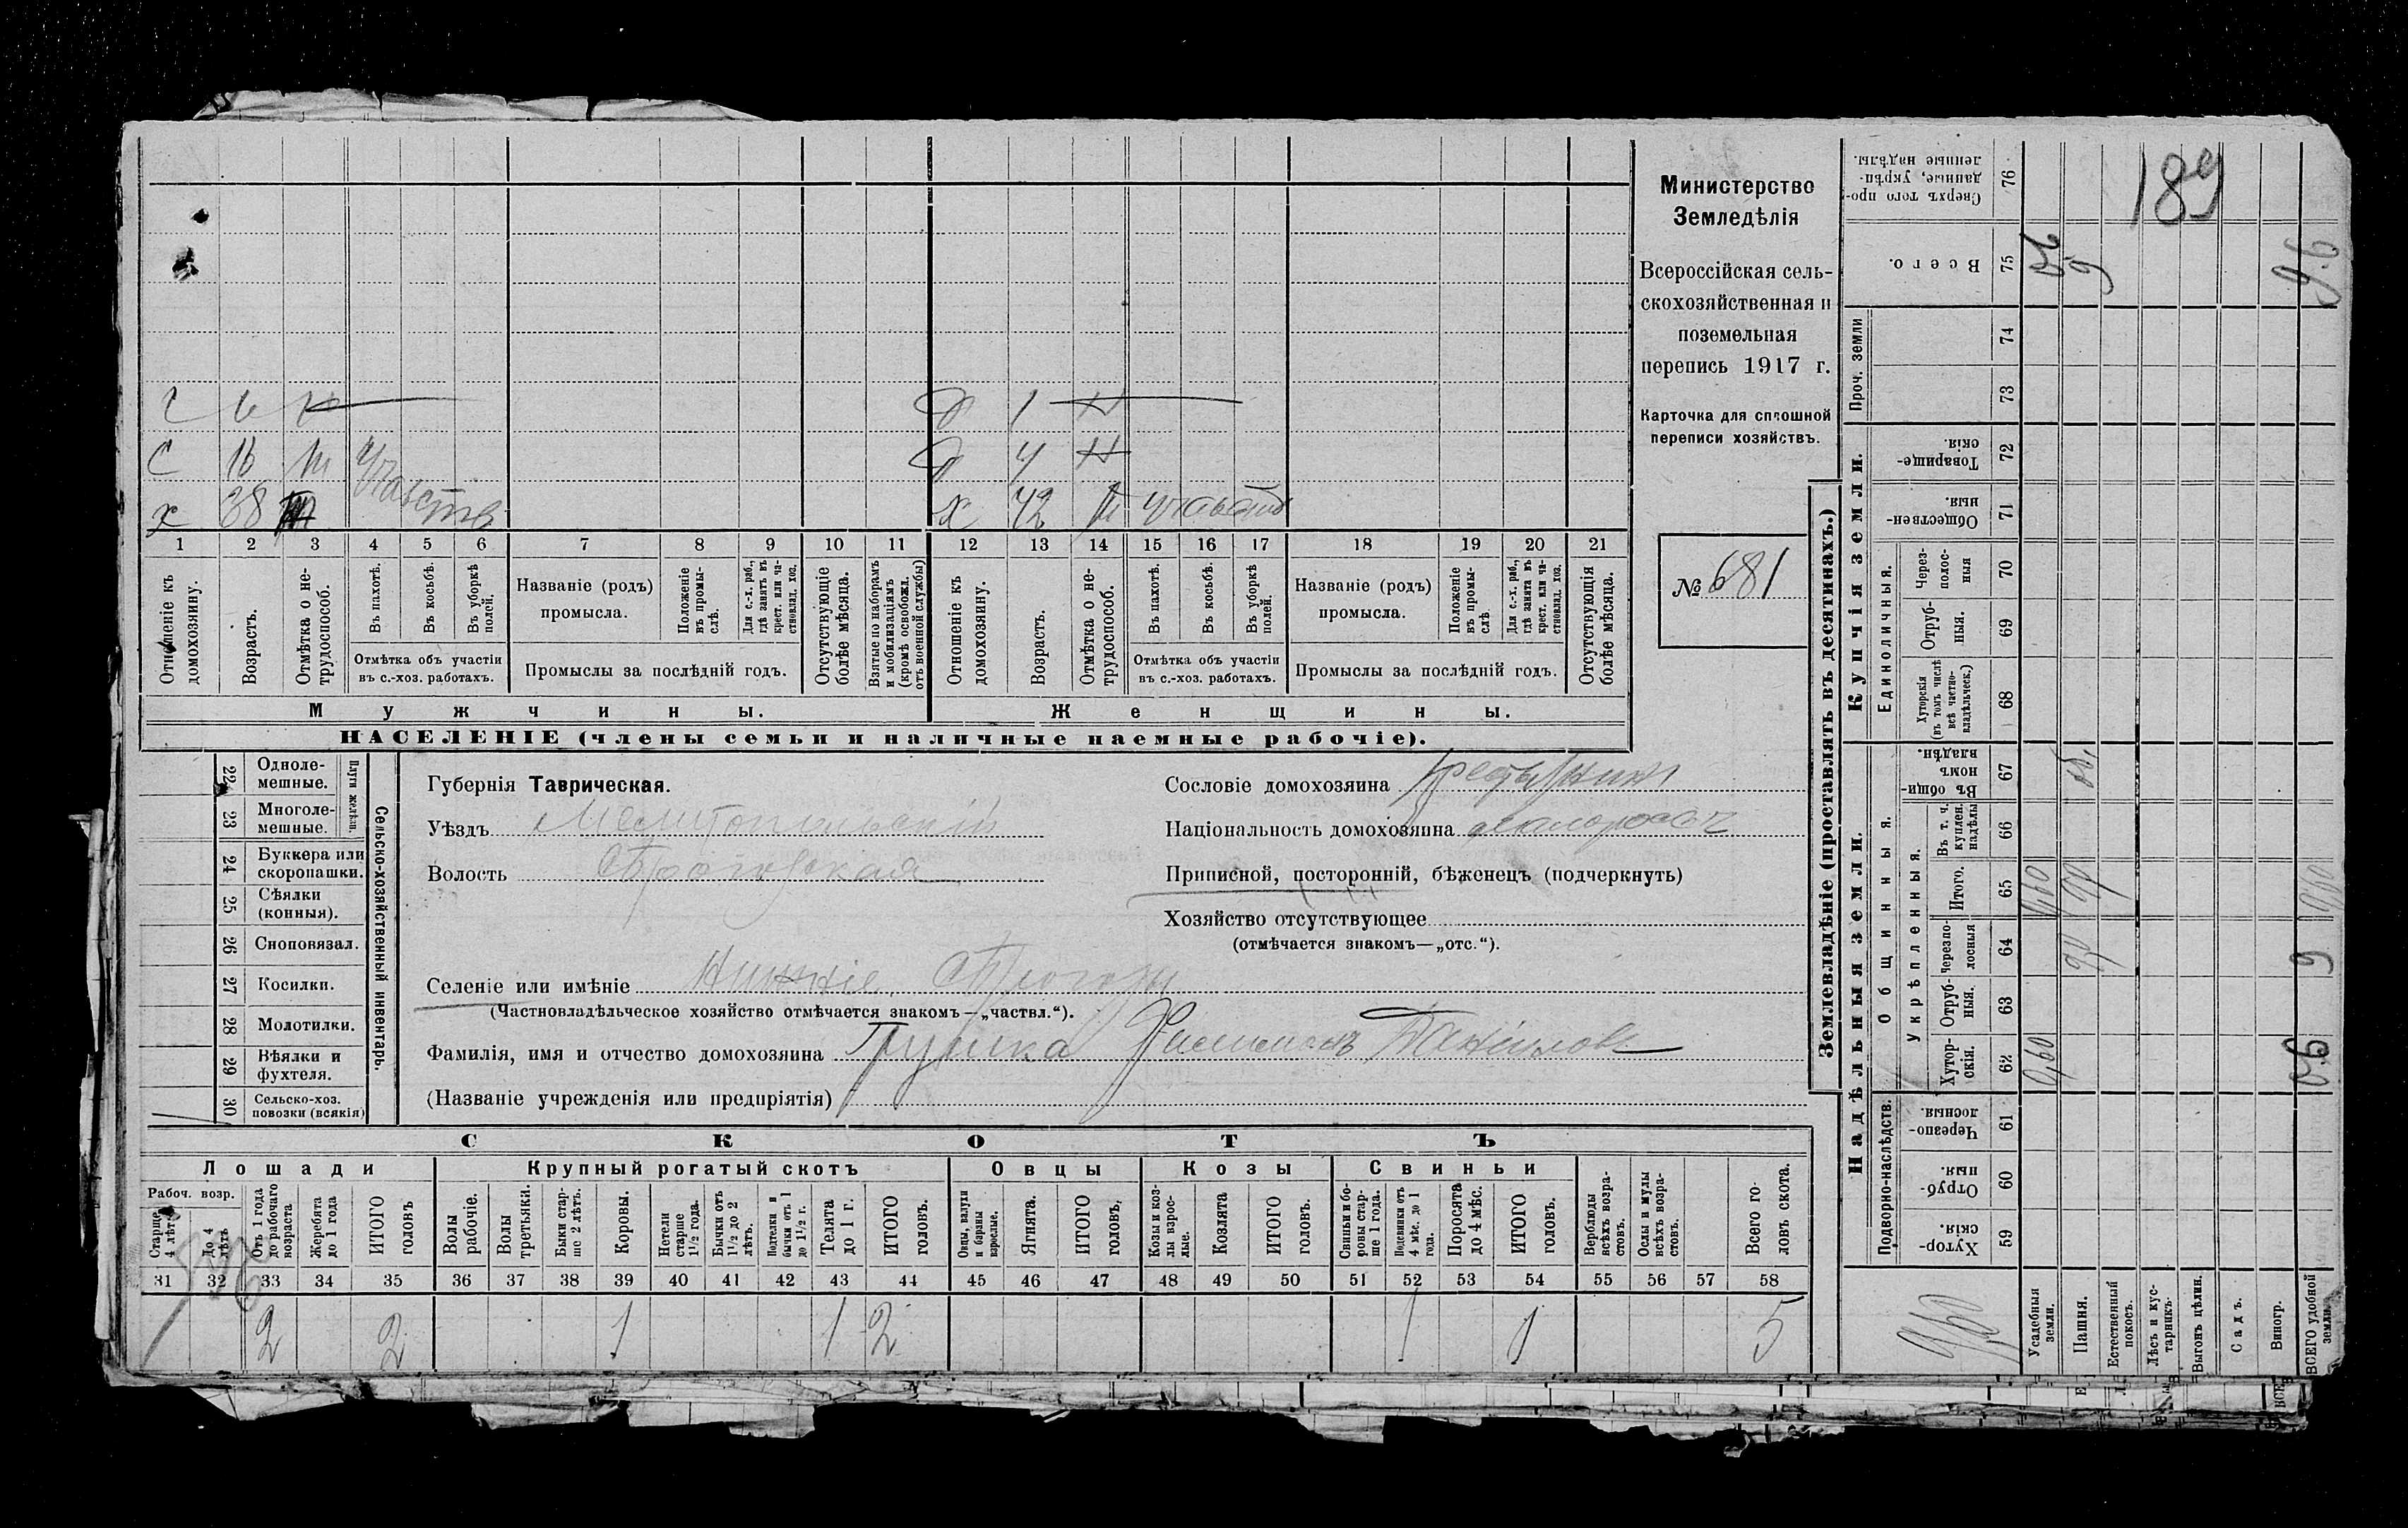 189
Министерство
Земледѣлія
Всероссійская сель-
скохозяйственная и
поземельная
перепись 1917 г.
Карточка для сплошной
переписи хозяйствъ.
№ 681
с 6 н
д 1 н
с 16
д 4 н
х 38
х 42
1 2 3 4 5 6 7 8 9 10 11 12 13 14 15 16 17 18 19 20 21
Отношеніе къ домохозяину.
Возрастъ.
Отмѣтка о не-трудоспособ.
Въ пахотѣ.
Въ косьбѣ.
Въ уборкѣ полей.
Отмѣтка объ участіи
въ с.-хоз. работахъ.
Названіе (родъ)
промысла.
Положеніе въ промы-слѣ.
Для с.-х. раб., гдѣ занятъ въ крест. или ча-стновлад. хоз.
Промыслы за послѣдній годъ.
Отсутствующіе болѣе мѣсяца.
Взятые по наборамъ и мобилизаціямъ (кромѣ освобожл. отъ военной службы)
Отношеніе къ домохозяину.
Возрастъ.
Отмѣтка о не-трудоспособ.
Въ пахотѣ.
Въ косьбѣ.
Въ уборкѣ полей.
Отмѣтка объ участіи
въ с.-хоз. работахъ.
Названіе (родъ)
промысла.
Положеніе въ промы-слѣ.
Для с.-х. раб., гдѣ занятъ въ крест. или ча-стновлад. хоз.
Промыслы за послѣдній годъ.
Отсутствующія болѣе мѣсяца.
Мужчины.
Женщины.
НАСЕЛЕНІЕ (члены семьи и наличные наемные рабочіе).
Сельско-хозяйственный инвентарь.
Плуги желѣзн.
22 Одноле-мешные.
23 Многоле-мешные.
24 Буккера или скоропашки.
25 Сѣялки (конныя).
26 Сноповязал.
27 Косилки.
28 Молотилки.
29 Вѣялки и фухтеля.
30 Сельско-хоз. повозки (всякія)
Губернія Таврическая.
Уѣздъ Мелитопольскій
Волость
Селеніе или имѣніе Нижніе Сѣрогозы
(Частновладѣльческое хозяйство отмѣчается знакомъ—„частвл.“).
Фамилія, имя и отчество домохозяина Грушка
(Названіе учрежденія или предпріятія)
Сословіе домохозяина
Національность домохозяина малороссъ
Приписной, посторонній, бѣженецъ (подчеркнуть)
Хозяйство отсутствующее
(отмѣчается знакомъ—„отс.“).
СКОТЪ
Лошади
Крупный рогатый скотъ
Овцы
Козы
Свиньи
Рабоч. возр.
Старше 4 лѣтъ
До 4 лѣтъ
Отъ 1 года до рабочаго возраста
Жеребята до 1 года
ИТОГО головъ
Волы рабочіе.
Волы третьяки.
Быки стар-ше 2 лѣтъ.
Коровы.
Нетели старше 1½ года.
Бычки отъ 1½ до 2 лѣтъ.
Подтелки и бычки отъ 1 до 1½ г.
Телята до 1 г.
ИТОГО головъ.
Овцы, валухи и бараны взрослые.
Ягнята.
ИТОГО головъ.
Козы и коз-лы взрос-лые.
Козлята
ИТОГО головъ.
Свиньи и бо-ровы стар-ше 1 года.
Подсвинки отъ 4 мѣс. до 1 года.
Поросята до 4 мѣс.
ИТОГО головъ.
Верблюды всѣхъ возра-стовъ.
Ослы и мулы всѣхъ возра-стовъ.
Всего го-ловъ скота.
31 32 33 34 35 36 37 38 39 40 41 42 43 44 45 46 47 48 49 50 51 52 53 54 55 56 57 58
2 2 1 1 2 1 1 5
Землевладѣніе (проставлять въ десятинахъ.)
Надѣльныя земли.
Купчія земли.
Проч. земли
Подворно-наслѣдств.
Общинныя.
Укрѣпленныя.
Единоличныя.
59 Хутор-скія.
60 Отруб-ныя.
61 Черезпо-лосныя.
62 Хутор-скія.
63 Отруб-ныя.
64 Черезпо-лосныя
65 Итого.
66 Въ т. ч. куплен. надѣлы
67 Въ общи-номъ владѣн.
68 Хуторскія (въ томъ числѣ всѣ частно-владѣльческ.)
69 Отруб-ныя.
70 Через-полос-ныя
71 Обществен-ныя.
72 Товарище-скія.
73
74
75 Всего.
76 Сверхъ того про-данные, укрѣп-ленные надѣлы.
Усадебныя земли.
Пашня.
Естественный покосъ.
Лѣсъ и кус-тарникъ.
Выгонъ цѣлин.
Садъ.
Виногр.
ВСЕГО удобной земли.
0,60
0,60
9
9.6